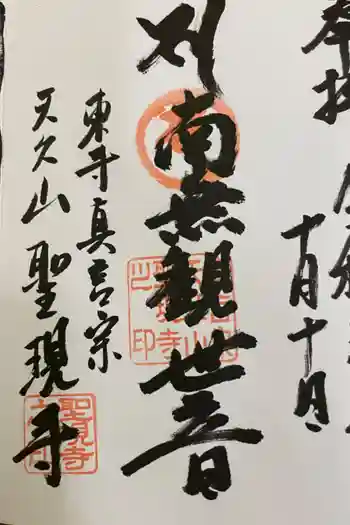 奉拝
十月十日
南無観世音
東寺真言宗
天久山聖現寺
聖現寺